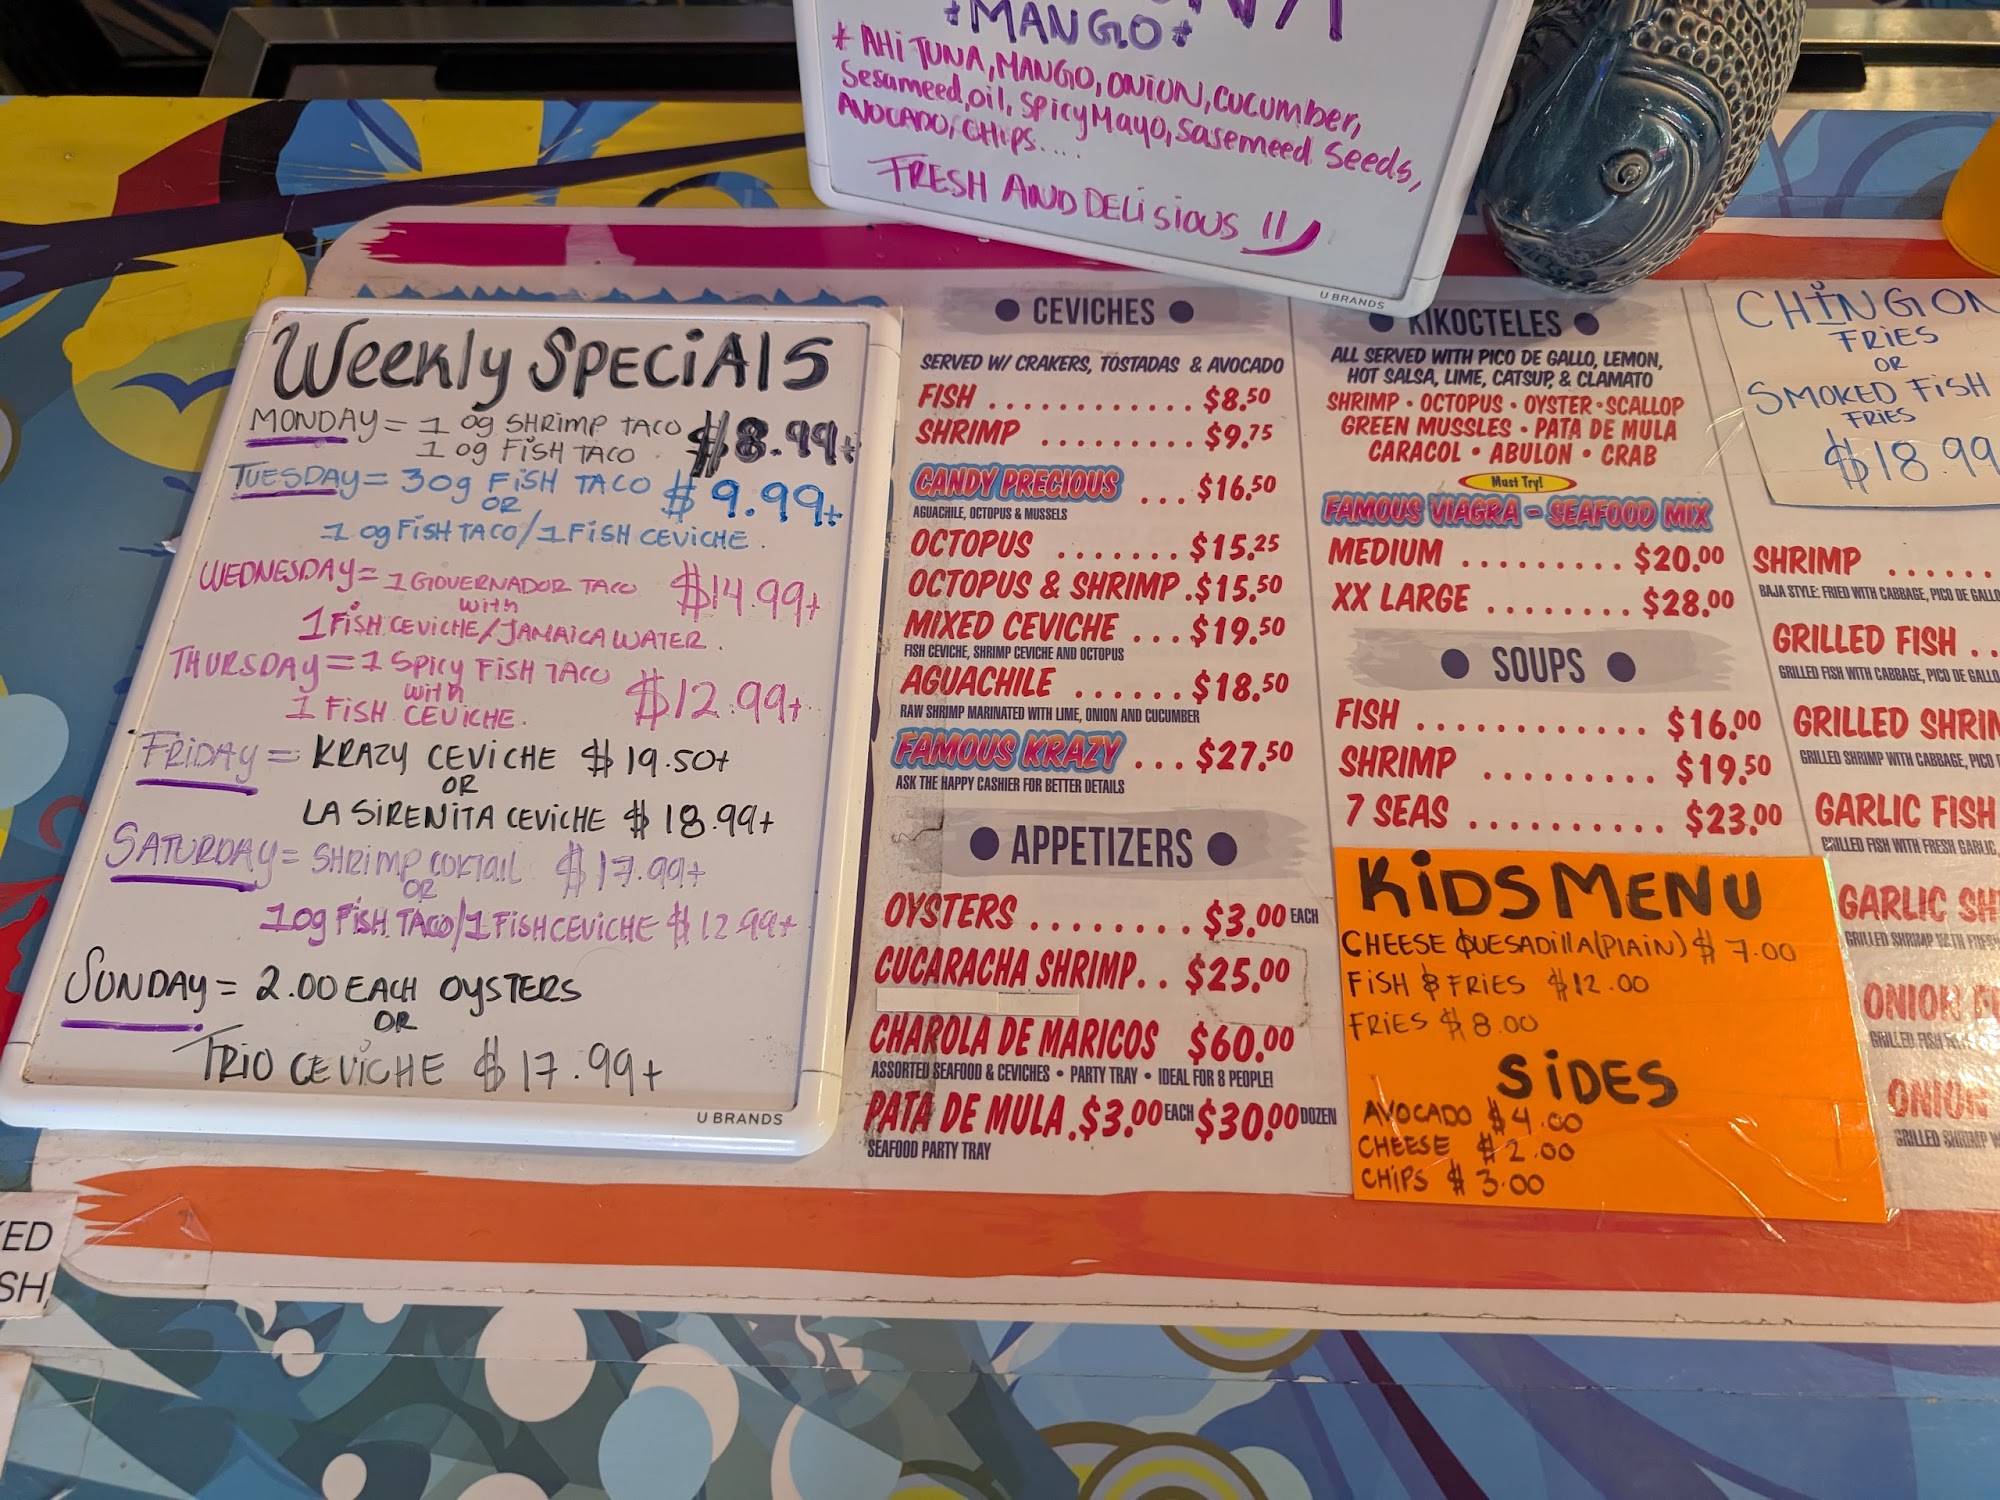 *MANGO*
* AHI TUNA, MANGO, ONION, CUCUMBER,
Sesameed, oil, Spicy Mayo, Sasemeed Seeds,
AVOCADO, CHIPS....
FRESH AND DELISIOUS !!
U BRANDS
Weekly SPECIALS
MONDAY = 1 og SHRIMP TACO $8.99+
1 og FISH TACO
TUESDAY = 3 og FISH TACO $9.99+
OR
1 og FISH TACO/1 FISH CEVICHE.
WEDNESDAY = 1 GOVERNADOR TACO $14.99+
with
1 FISH CEVICHE/JAMAICA WATER.
THURSDAY = 1 SPICY FISH TACO $12.99+
with
1 FISH CEVICHE.
FRIDAY = KRAZY CEVICHE $19.50+
OR
LA SIRENITA CEVICHE $18.99+
SATURDAY = SHRIMP COKTAIL $17.99+
OR
1 og FISH TACO/1 FISH CEVICHE $12.99+
SUNDAY = 2.00 EACH OYSTERS
OR
TRIO CEVICHE $17.99+
U BRANDS
KED
SH
• CEVICHES •
SERVED W/ CRAKERS, TOSTADAS & AVOCADO
FISH ............ $8.50
SHRIMP ......... $9.75
CANDY PRECIOUS ... $16.50
AGUACHILE, OCTOPUS & MUSSELS
OCTOPUS ....... $15.25
OCTOPUS & SHRIMP . $15.50
MIXED CEVICHE ... $19.50
FISH CEVICHE, SHRIMP CEVICHE AND OCTOPUS
AGUACHILE ...... $18.50
RAW SHRIMP MARINATED WITH LIME, ONION AND CUCUMBER
FAMOUS KRAZY ... $27.50
ASK THE HAPPY CASHIER FOR BETTER DETAILS
• APPETIZERS •
OYSTERS ........ $3.00 EACH
CUCARACHA SHRIMP .. $25.00
CHAROLA DE MARICOS $60.00
ASSORTED SEAFOOD & CEVICHES • PARTY TRAY • IDEAL FOR 8 PEOPLE!
PATA DE MULA . $3.00 EACH $30.00 DOZEN
SEAFOOD PARTY TRAY
• KIKOCTELES •
ALL SERVED WITH PICO DE GALLO, LEMON,
HOT SALSA, LIME, CATSUP, & CLAMATO
SHRIMP • OCTOPUS • OYSTER • SCALLOP
GREEN MUSSLES • PATA DE MULA
CARACOL • ABULON • CRAB
Must Try!
FAMOUS VIAGRA - SEAFOOD MIX
MEDIUM ......... $20.00
XX LARGE ........ $28.00
• SOUPS •
FISH ............ $16.00
SHRIMP ......... $19.50
7 SEAS .......... $23.00
KIDS MENU
CHEESE QUESADILLA (PLAIN) $7.00
FISH & FRIES $12.00
FRIES $8.00
SIDES
AVOCADO $4.00
CHEESE $2.00
CHIPS $3.00
CHINGON
FRIES
OR
SMOKED FISH
FRIES
$18.99
SHRIMP ......
BAJA STYLE: FRIED WITH CABBAGE, PICO DE GALLO
GRILLED FISH ..
GRILLED FISH WITH CABBAGE, PICO DE GALLO
GRILLED SHRIM
GRILLED SHRIMP WITH CABBAGE, PICO
GARLIC FISH
GRILLED FISH WITH FRESH GARLIC,
GARLIC SH
GRILLED SHRIMP WITH FRESH
ONION F
GRILLED FISH
ONION
GRILLED SHRIMP W